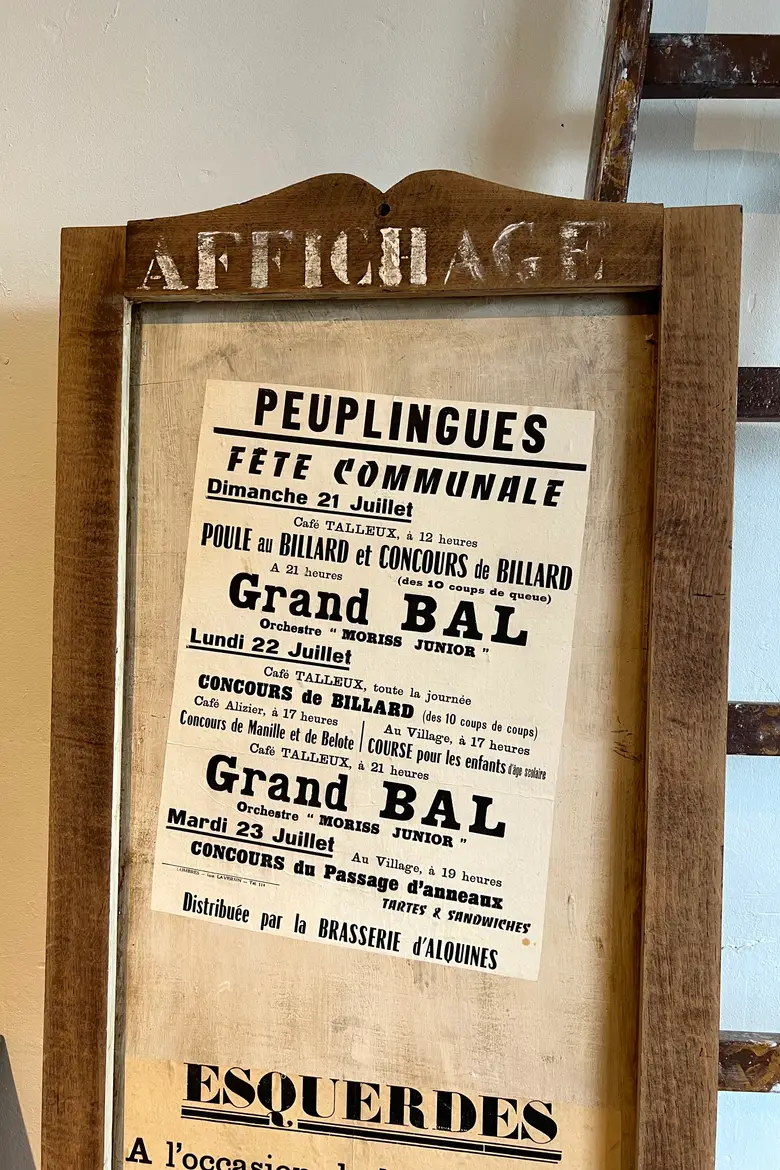 AFFICHAGE
PEUPLINGUES
FÊTE COMMUNALE
Dimanche 21 Juillet
Café TALLEUX, à 12 heures
POULE au BILLARD et CONCOURS de BILLARD
A 21 heures (des 10 coups de queue)
Grand BAL
Orchestre “ MORISS JUNIOR ”
Lundi 22 Juillet
Café TALLEUX, toute la journée
CONCOURS de BILLARD (des 10 coups de coups)
Café Alizier, à 17 heures
Concours de Manille et de Belote
Au Village, à 17 heures
COURSE pour les enfants d'âge scolaire
Café TALLEUX, à 21 heures
Grand BAL
Orchestre “ MORISS JUNIOR ”
Mardi 23 Juillet
Au Village, à 19 heures
CONCOURS du Passage d'anneaux
TARTES & SANDWICHES
Distribuée par la BRASSERIE d'ALQUINES
ESQUERDES
A l'occasion